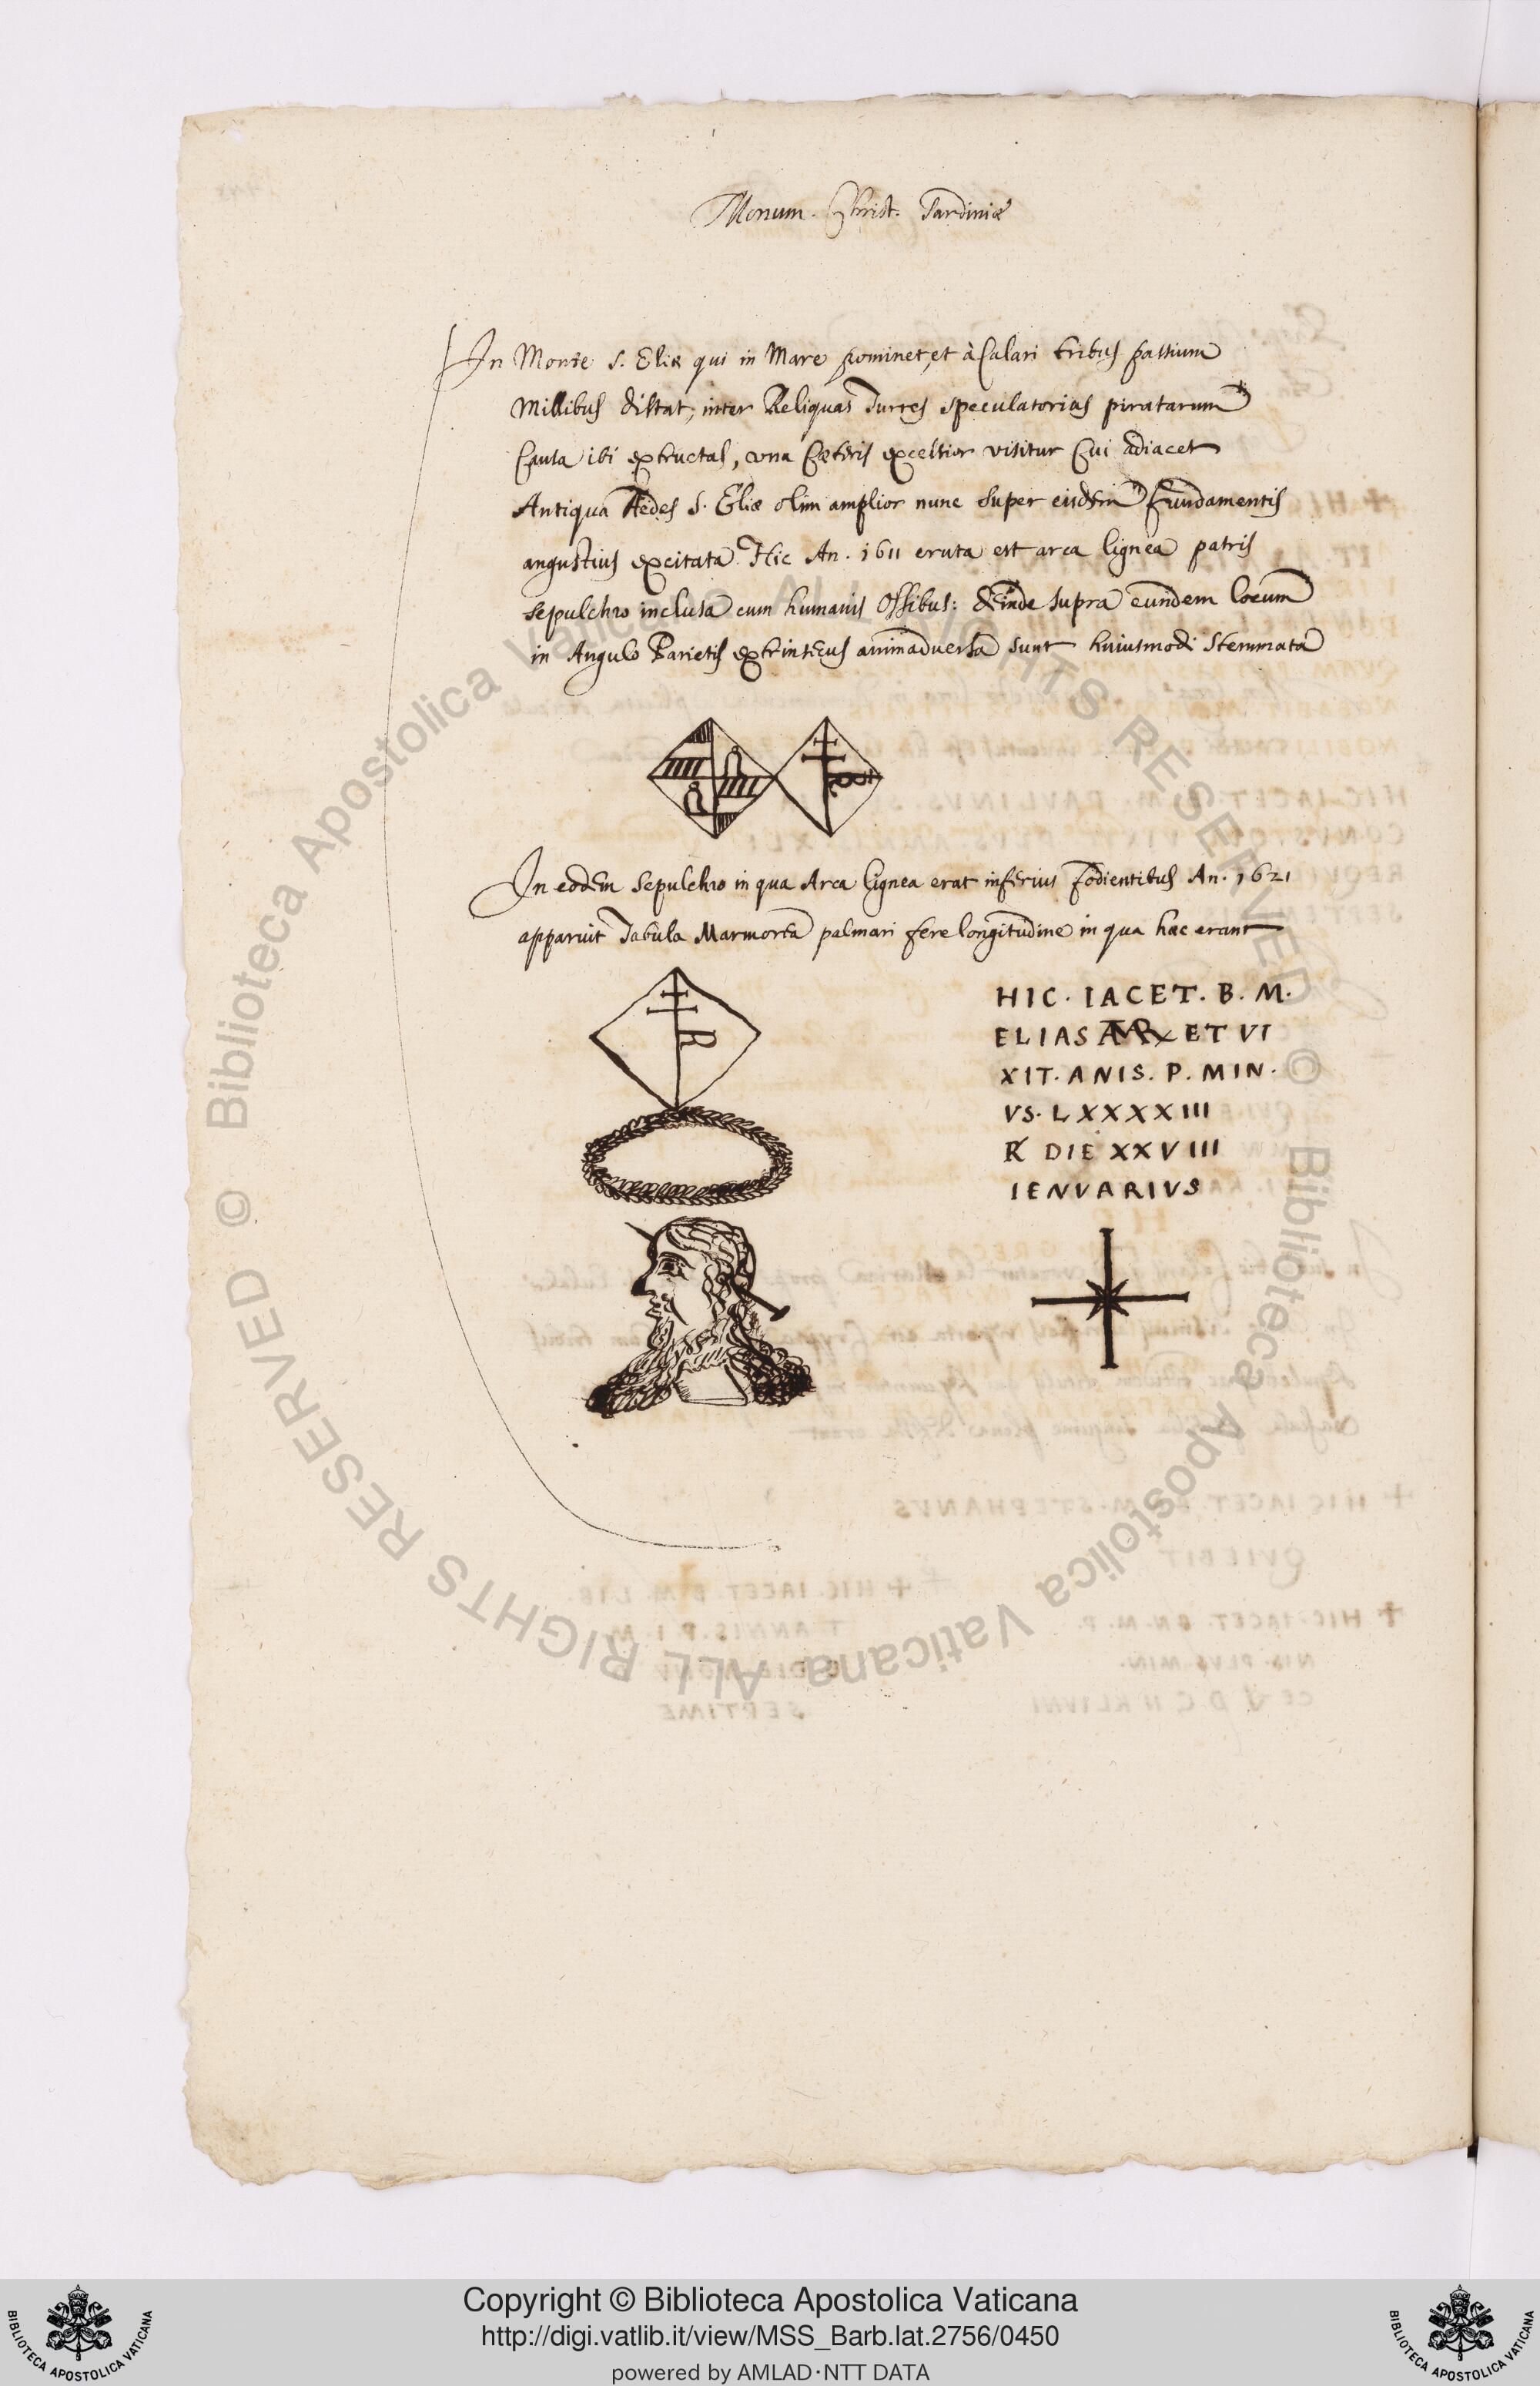 Monum. Christ. Sardiniæ
In Monte S. Eliæ qui in Mare prominet, et à Calari tribus passium
Millibus distat, inter Reliquas Turres speculatorias piratarum
Causa ibi extructas, una Cæteris excelsior visitur Cui adiacet
Antiqua Aedes S. Eliæ olim amplior nunc super eisdem fundamentis
angustius excitata Hic An. 1611 eruta est arca lignea patris
sepulchro inclusa cum humanis Ossibus: deinde supra eundem locum
in Angulo Parietis extrinsecus animadversa sunt huiusmodi Stemmata
In eodem Sepulchro in qua Arca lignea erat inferius fodientibus An. 1621
apparuit Tabula Marmorea palmari fere longitudine in qua hæc erant
R
HIC. IACET. B. M.
ELIAS ET VI
XIT. ANIS. P. MIN.
VS. LXXXXIII
R DIE XXVIII
IENVARIVS
© Biblioteca Apostolica Vaticana ALL RIGHTS RESERVED
© Biblioteca Apostolica Vaticana ALL RIGHTS RESERVED
Copyright © Biblioteca Apostolica Vaticana
http://digi.vatlib.it/view/MSS_Barb.lat.2756/0450
powered by AMLAD·NTT DATA
BIBLIOTECA APOSTOLICA VATICANA
BIBLIOTECA APOSTOLICA VATICANA